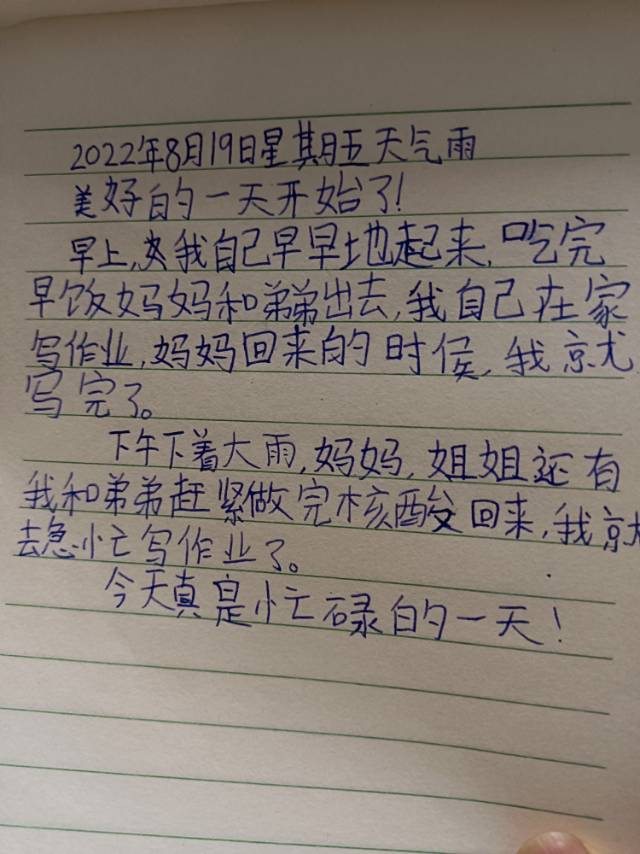 2022年8月19日星期五天气雨
美好的一天开始了!
早上,我自己早早地起来,吃完
早饭妈妈和弟弟出去,我自己在家
写作业,妈妈回来的时侯,我就
写完了。
下午下着大雨,妈妈,姐姐还有
我和弟弟赶紧做完核酸回来,我就
去急忙写作业了。
今天真是忙碌的一天!